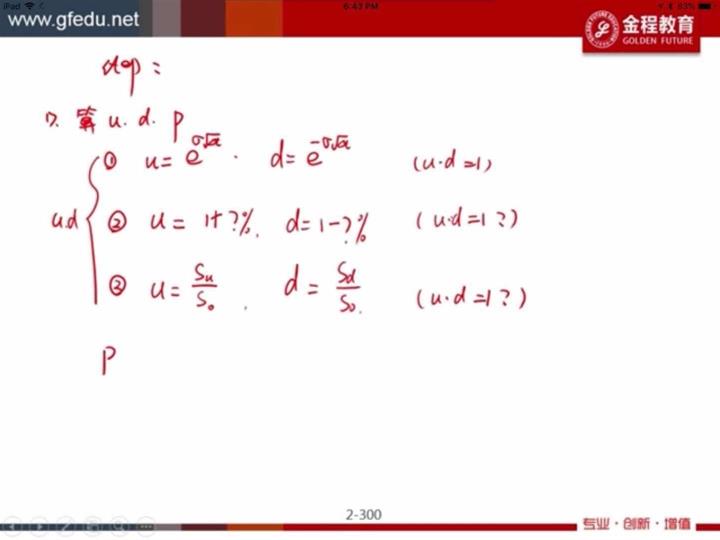 iPad 6:43 PM 83%
www.gfedu.net
金程教育
GOLDEN FUTURE
step:
1). 算 u. d. p
u.d
① u = e^σ√Δt . d = e^-σ√Δt (u·d=1)
② u = 1+?%. d = 1-?% (u·d=1?)
③ u = Su/S0 . d = Sd/S0. (u·d=1?)
P
2-300
专业·创新·增值